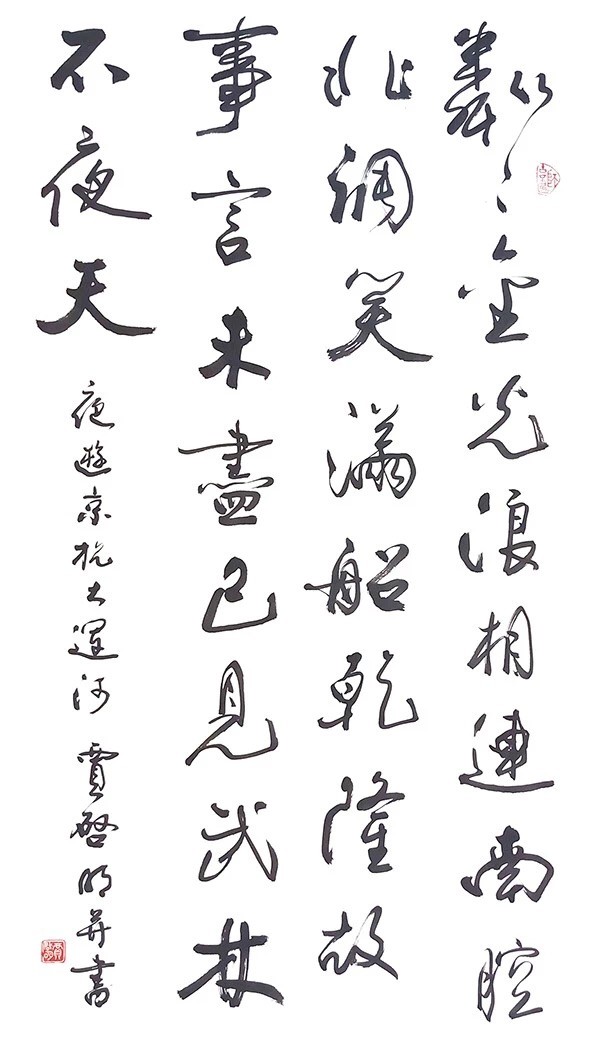 粼々金光浪相連南腔
北調笑滿船乾隆故
事言未盡已見武林
不夜天
夜遊京杭大運河 賈啓明并書